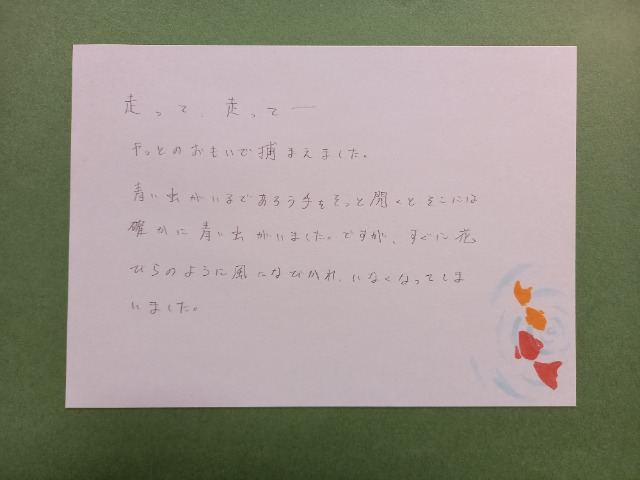 走って、走って—
やっとのおもいで捕まえました。
青い出がいるであろう手をそっと開くとそこには
確かに青い出がいました。ですが、すぐに花
びらのように風になびかれ、いなくなってしま
いました。